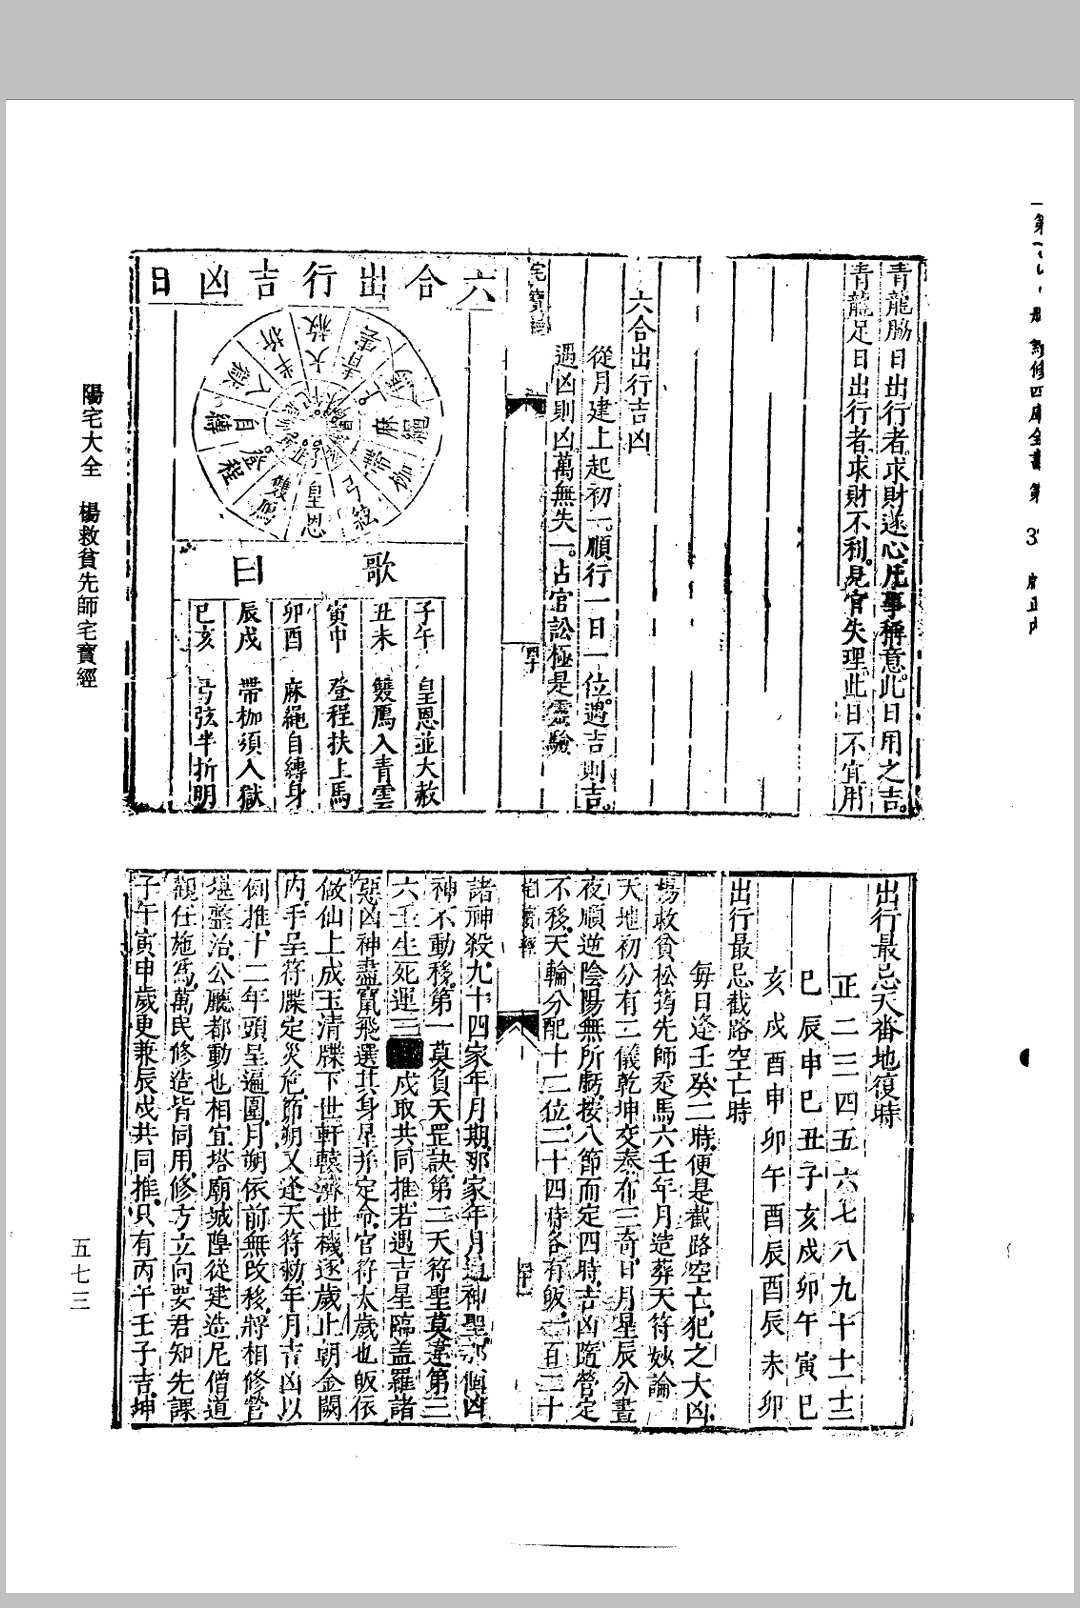 青龍脇日出行者求財遂心凡事稱意此日用之吉。
青龍足日出行者求財不利見官失理此日不宜用
六合出行吉凶
從月建上起初一。順行一日一位。遇吉則吉。
遇凶則凶萬無失一。占官訟極是靈驗
宅寶經
四十
六合出行吉凶日
大赦
青雲
上
麻繩
弓弦
皇恩
雙鴈
登程
自縛
入獄
半折
歌曰
子午 皇恩並大赦
丑未 雙鴈入青雲
寅申 登程扶上馬
卯酉 麻繩自縛身
辰戌 帶枷須入獄
巳亥 弓弦半折明
出行最忌天番地復時
正二三四五六七八九十十一十二
巳辰申巳丑子亥戌卯午寅巳
亥戌酉申卯午酉辰酉辰未卯
出行最忌截路空亡時
每日逢壬癸二時便是截路空亡犯之大凶
楊救貧松筠先師走馬六壬年月造葬天符妙論
天地初分有二儀乾坤交泰布三奇日月星辰分晝
夜順逆陰陽無所虧按八節而定四時吉凶隨營定
不移天輪分配十二位二十四時各有皈一百二十
宅寶經
諸神殺九十四家年月期那家年月通神聖
神不動移第一莫負天罡訣第二天符聖莫違第三
六壬生死運三 戌取共同推若遇吉星臨蓋羅諸
惡凶神盡竄飛選其身星并定命官符太歲也皈依
做仙上成玉清牒下世軒轅濟世機逐歲止朝金闕
內手呈符牒定災危節朔又逢天符勅年月吉凶以
例推十二年頭呈遍圍月朔依前無改移將相修營
堪盤治公廳都動也相宜塔廟城隍從建造尼僧道
觀任施爲萬民修造皆同用修方立向要君知先課
子午寅申歲更兼辰戌共同推只有丙午壬子吉坤
陽宅大全 楊救貧先師宅寶經
五七三